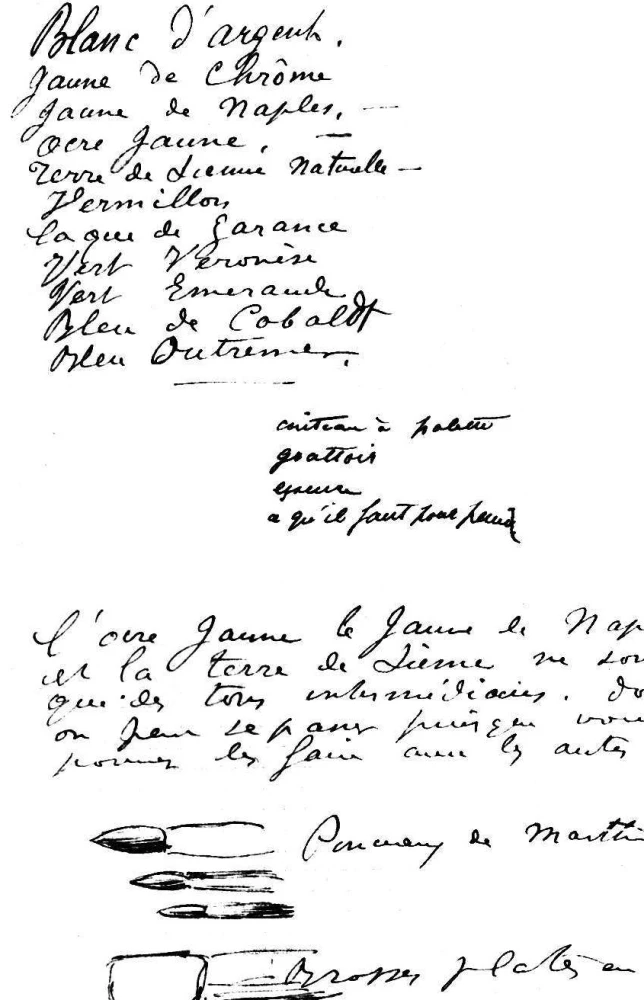 Blanc d'argent.
Jaune de Chrôme
Jaune de Naples. —
Ocre Jaune. —
Terre de Sienne Naturelle —
Vermillon
Laque de Garance
Vert Veronèse
Vert Emeraude
Bleu de Cobaldt
Bleu Outremer.
couteau à palette
grattoir
essence
ce qu'il faut pour peindre
l'ocre Jaune le Jaune de Nap
et la terre de Sienne ne son
que des tons intermédiaires. do
on peut se passer puisque vous
pouvez les faire avec les autres
Pinceaux de Martt
Brosses plates en